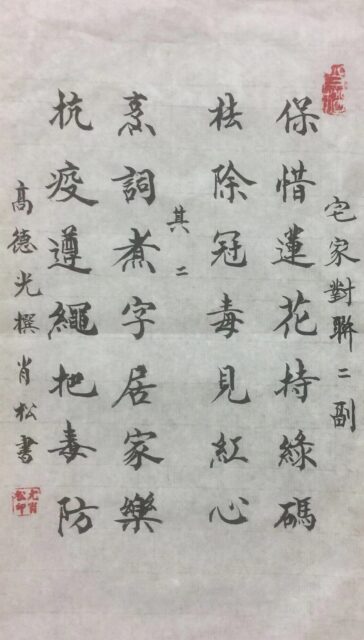 宅家對聯二副
保惜蓮花持綠碼
祛除冠毒見紅心
其二
烹詞煮字居家樂
抗疫遵繩把毒防
高德光撰肖松書